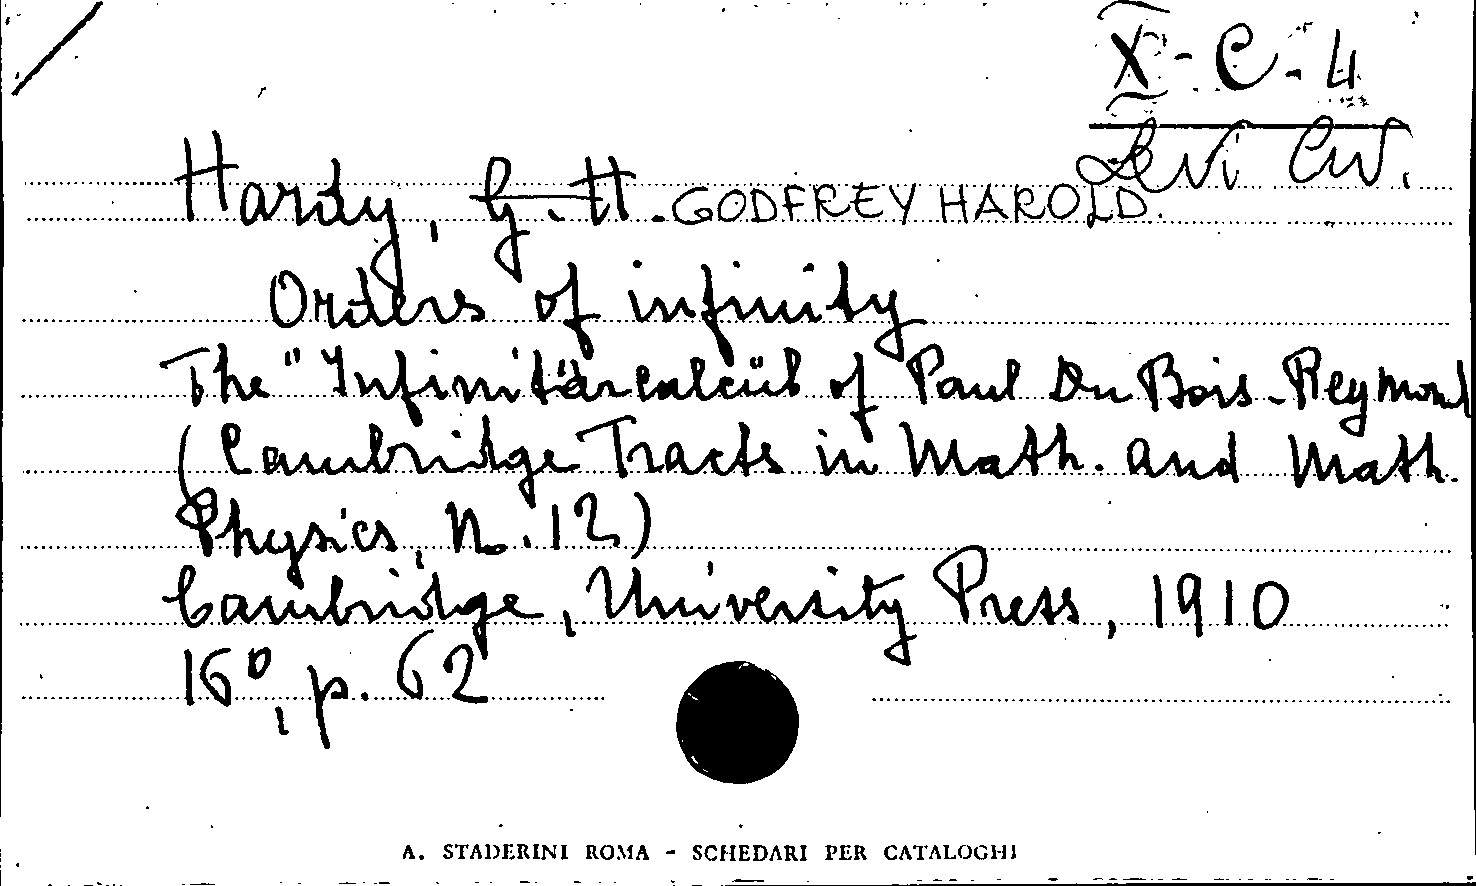 X - C - 4
Levi Civ.
Hardy, G. H. GODFREY HAROLD.
Orders of infinity
The "Infinitärcalcül" of Paul Du Bois-Reymond
(Cambridge Tracts in Math. and Math.
Physics, N. 12)
Cambridge, University Press, 1910
16°, p. 62
A. STADERINI ROMA - SCHEDARI PER CATALOGHI